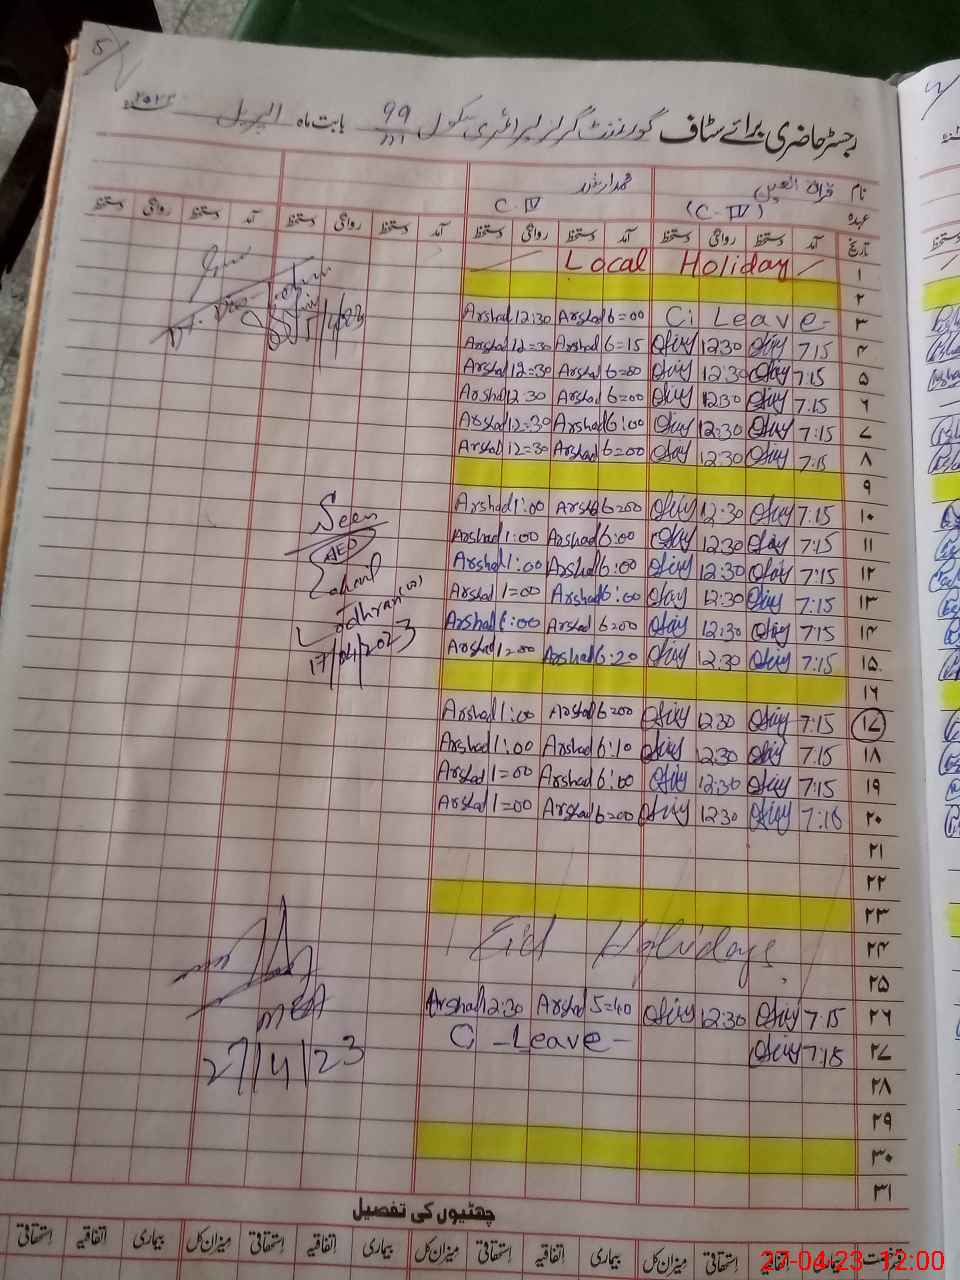 رجسٹر حاضری برائے سٹاف گورنمنٹ گرلز پرائمری سکول 99 بابت ماہ اپریل ۲۰۲۳ء
نام قراۃ العین محمد ارشد
عہدہ (C-IV) C-IV
تاریخ آمد دستخط روانگی دستخط آمد دستخط روانگی دستخط آمد دستخط روانگی دستخط آمد دستخط روانگی دستخط
۱ Local Holiday
۲
Arshad 12:30 Arshad 6=00 C. Leave ۳
Arshad 12=30 Arshad 6=15 12:30 7:15 ۴
Arshad 12=30 Arshad 6=00 12:30 7:15 ۵
Arshad 12:30 Arshad 6=00 12:30 7:15 ۶
Arshad 12=30 Arshad 6:00 12:30 7:15 ۷
Arshad 12=30 Arshad 6=00 12:30 7:15 ۸
۹
Arshad 1:00 Arshad 6=00 12:30 7:15 ۱۰
Arshad 1:00 Arshad 6:00 12:30 7:15 ۱۱
Arshad 1:00 Arshad 6:00 12:30 7:15 ۱۲
Arshad 1=00 Arshad 6:00 12:30 7:15 ۱۳
Arshad 1:00 Arshad 6=00 12:30 7:15 ۱۴
Arshad 1=00 Arshad 6:20 12:30 7:15 ۱۵
۱۶
Arshad 1:00 Arshad 6=00 12:30 7:15 ۱۷
Arshad 1:00 Arshad 6:10 12:30 7:15 ۱۸
Arshad 1=00 Arshad 6:00 12:30 7:15 ۱۹
Arshad 1=00 Arshad 6=00 12:30 7:16 ۲۰
۲۱
۲۲
۲۳
Eid Holidays ۲۴
۲۵
Arshad 12:30 Arshad 5=40 12:30 7:15 ۲۶
C-Leave- 7:15 ۲۷
۲۸
۲۹
۳۰
۳۱
Seen
AEO
Lodhran
17/04/2023
MEA
27/4/23
چھٹیوں کی تفصیل
بیماری اتفاقیہ استحقاقی میزان کل بیماری اتفاقیہ استحقاقی میزان کل بیماری اتفاقیہ استحقاقی میزان کل بیماری اتفاقیہ استحقاقی
27-04-23 12:00